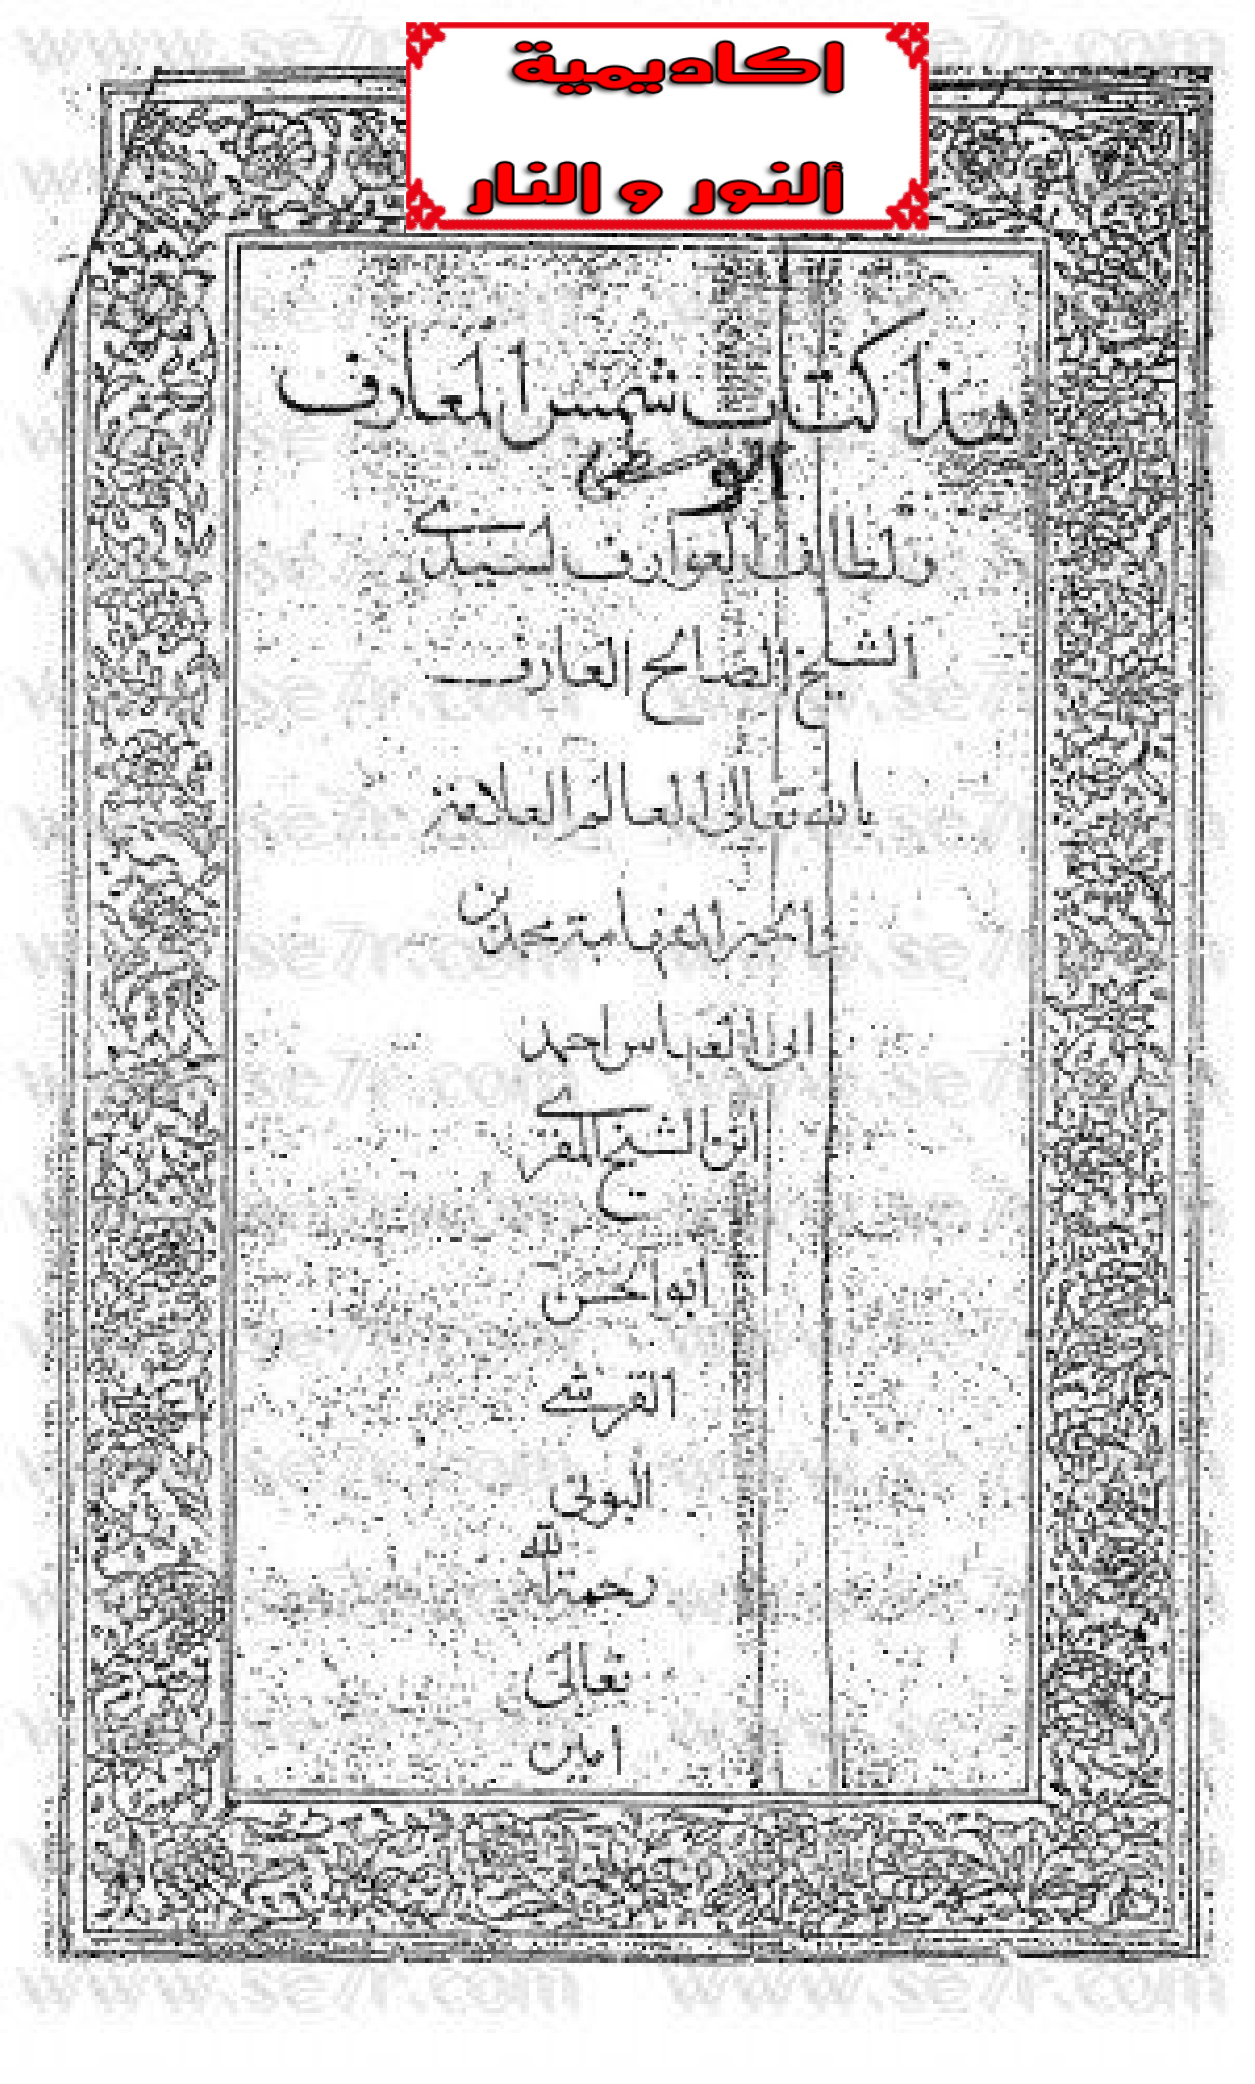 اكاديمية
ألنور و النار
هذا كتاب شمس المعارف
الوسطى
ولطائف العوارف لسيدي
الشيخ الصالح العارف
بالله تعالى العالم العلامة
محمد بن
ابى العباس احمد
ابن الشيخ المقري
أبو الحسن
القرشي
البوني
رحمة الله
تعالى
امين
www.se7r.com